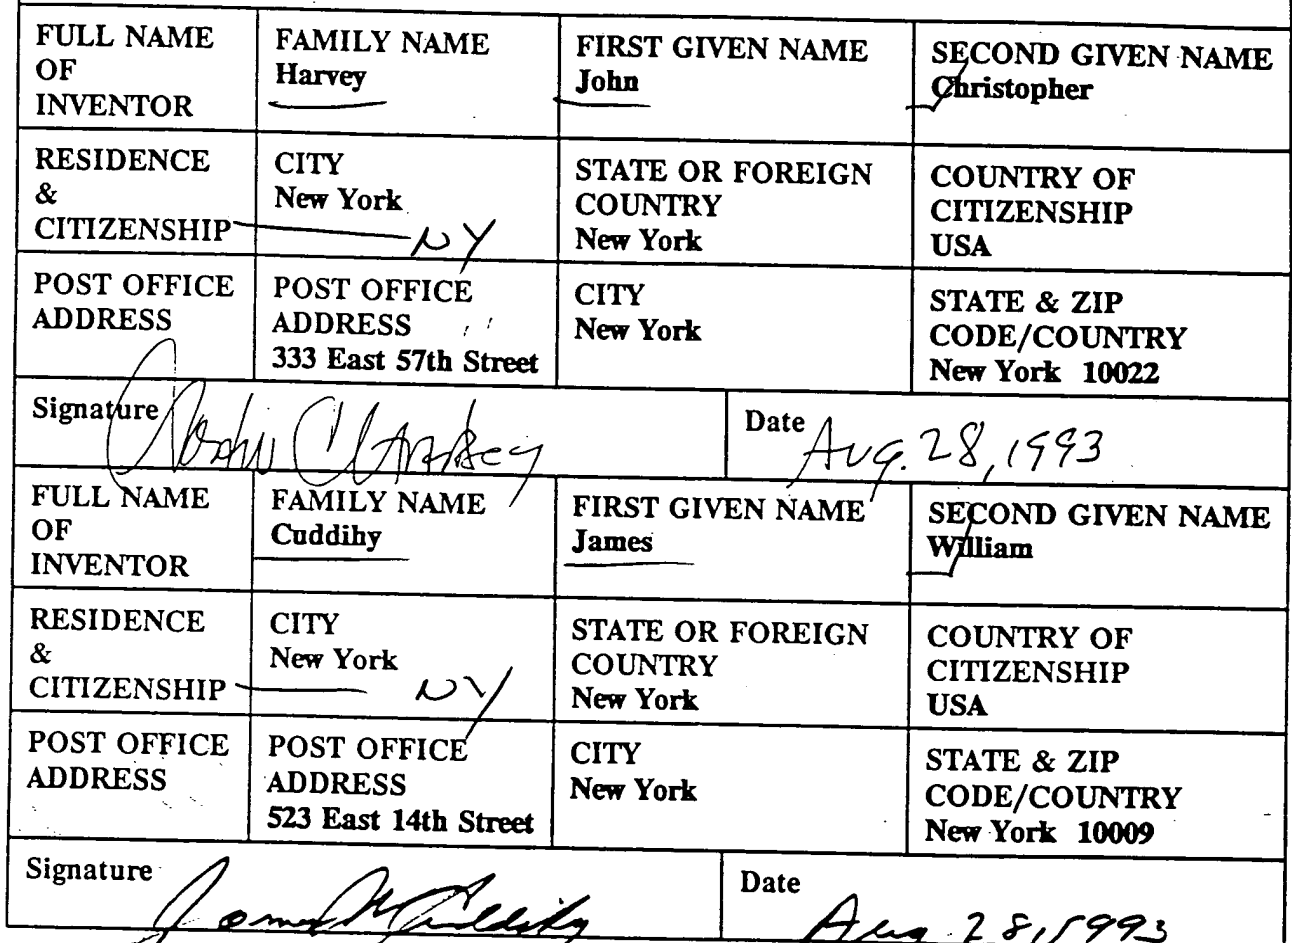 FULL NAME OF INVENTOR
FAMILY NAME
Harvey
FIRST GIVEN NAME
John
SECOND GIVEN NAME
Christopher
RESIDENCE & CITIZENSHIP
CITY
New York
NY
STATE OR FOREIGN COUNTRY
New York
COUNTRY OF CITIZENSHIP
USA
POST OFFICE ADDRESS
POST OFFICE ADDRESS
333 East 57th Street
CITY
New York
STATE & ZIP CODE/COUNTRY
New York 10022
Signature
John C Harvey
Date
Aug. 28, 1993
FULL NAME OF INVENTOR
FAMILY NAME
Cuddihy
FIRST GIVEN NAME
James
SECOND GIVEN NAME
William
RESIDENCE & CITIZENSHIP
CITY
New York
NY
STATE OR FOREIGN COUNTRY
New York
COUNTRY OF CITIZENSHIP
USA
POST OFFICE ADDRESS
POST OFFICE ADDRESS
523 East 14th Street
CITY
New York
STATE & ZIP CODE/COUNTRY
New York 10009
Signature
James W Cuddihy
Date
Aug 28, 1993